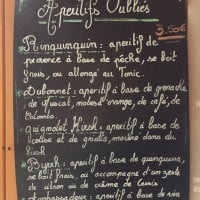 Apéritifs Oubliés
3.50€
*Rinquinquin: apéritif de
provence à base de pêche, se boit
frais, ou allongé au Tonic.
*Dubonnet: apéritif à base de
de Muscat, mœlse d'orange, de café, de
Colombo.
*guignolet Kirsch: apéritif à base de
et de griotte, macérée dans du
Kirsch
*Byrrh: apéritif à base de quinquina,
se boit frais, ou accompagné d'un zeste
de citron ou de crème de Cassis
apéritif à base de vin